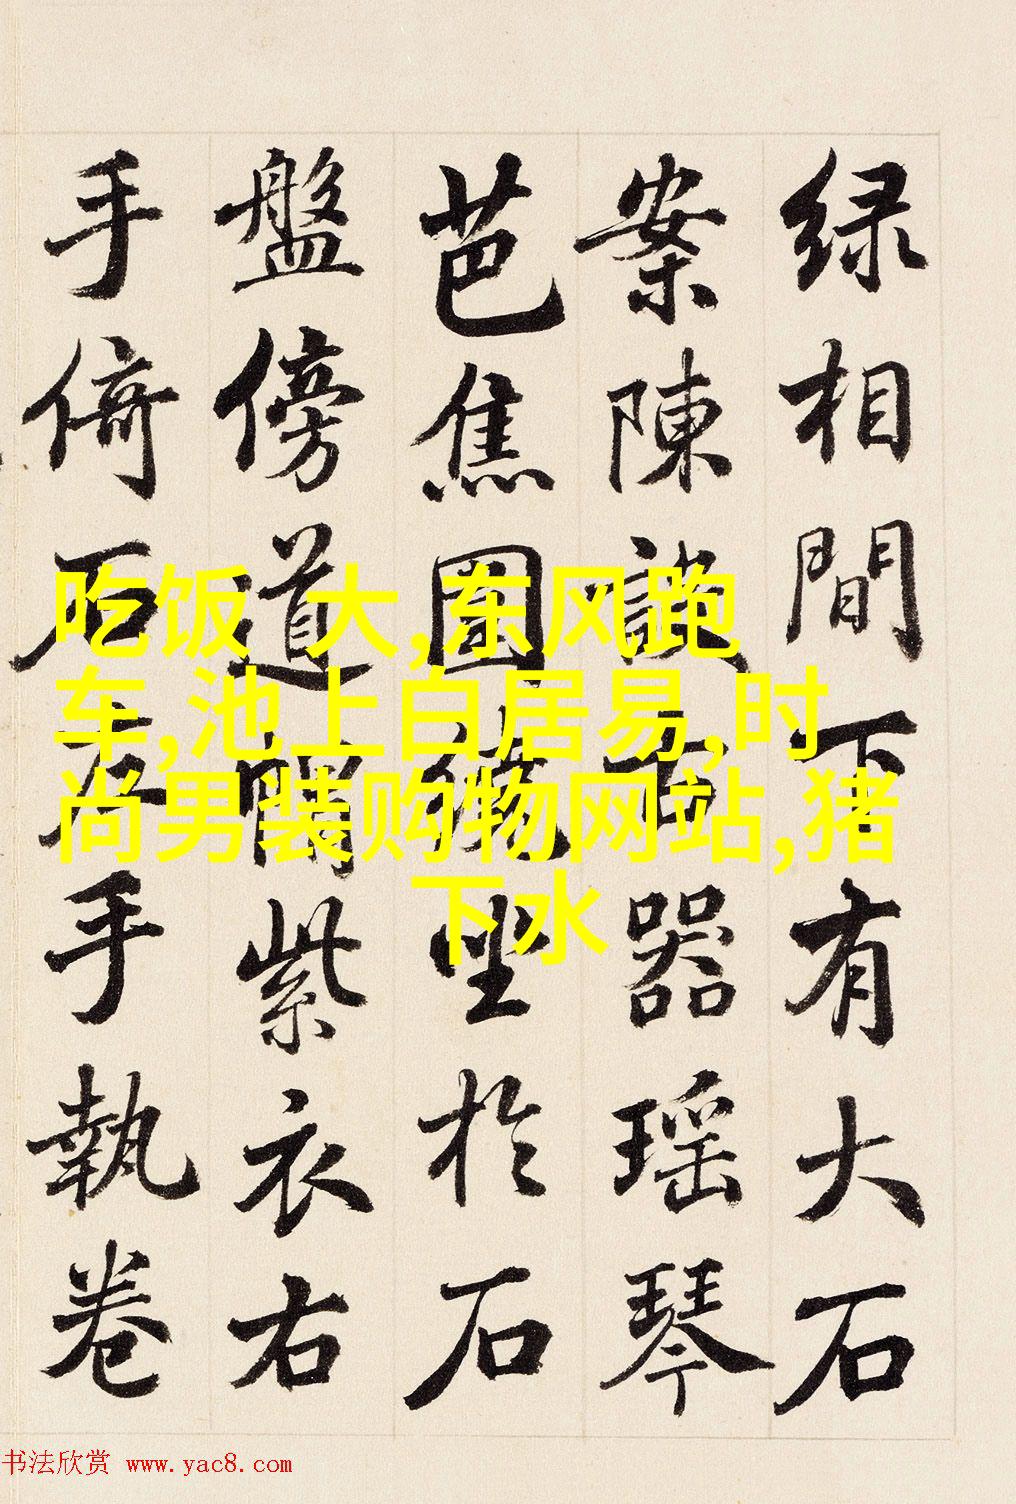 绿相間下有大石
案陳設古器瑶琴
芭焦圍繞坐於石
盤傍道帽紫衣右
手倚石左手執卷
吃饭 大,东风跑
车,池上白居易,时
尚男装购物网站,猪
下水
书法欣赏 www.yac8.com